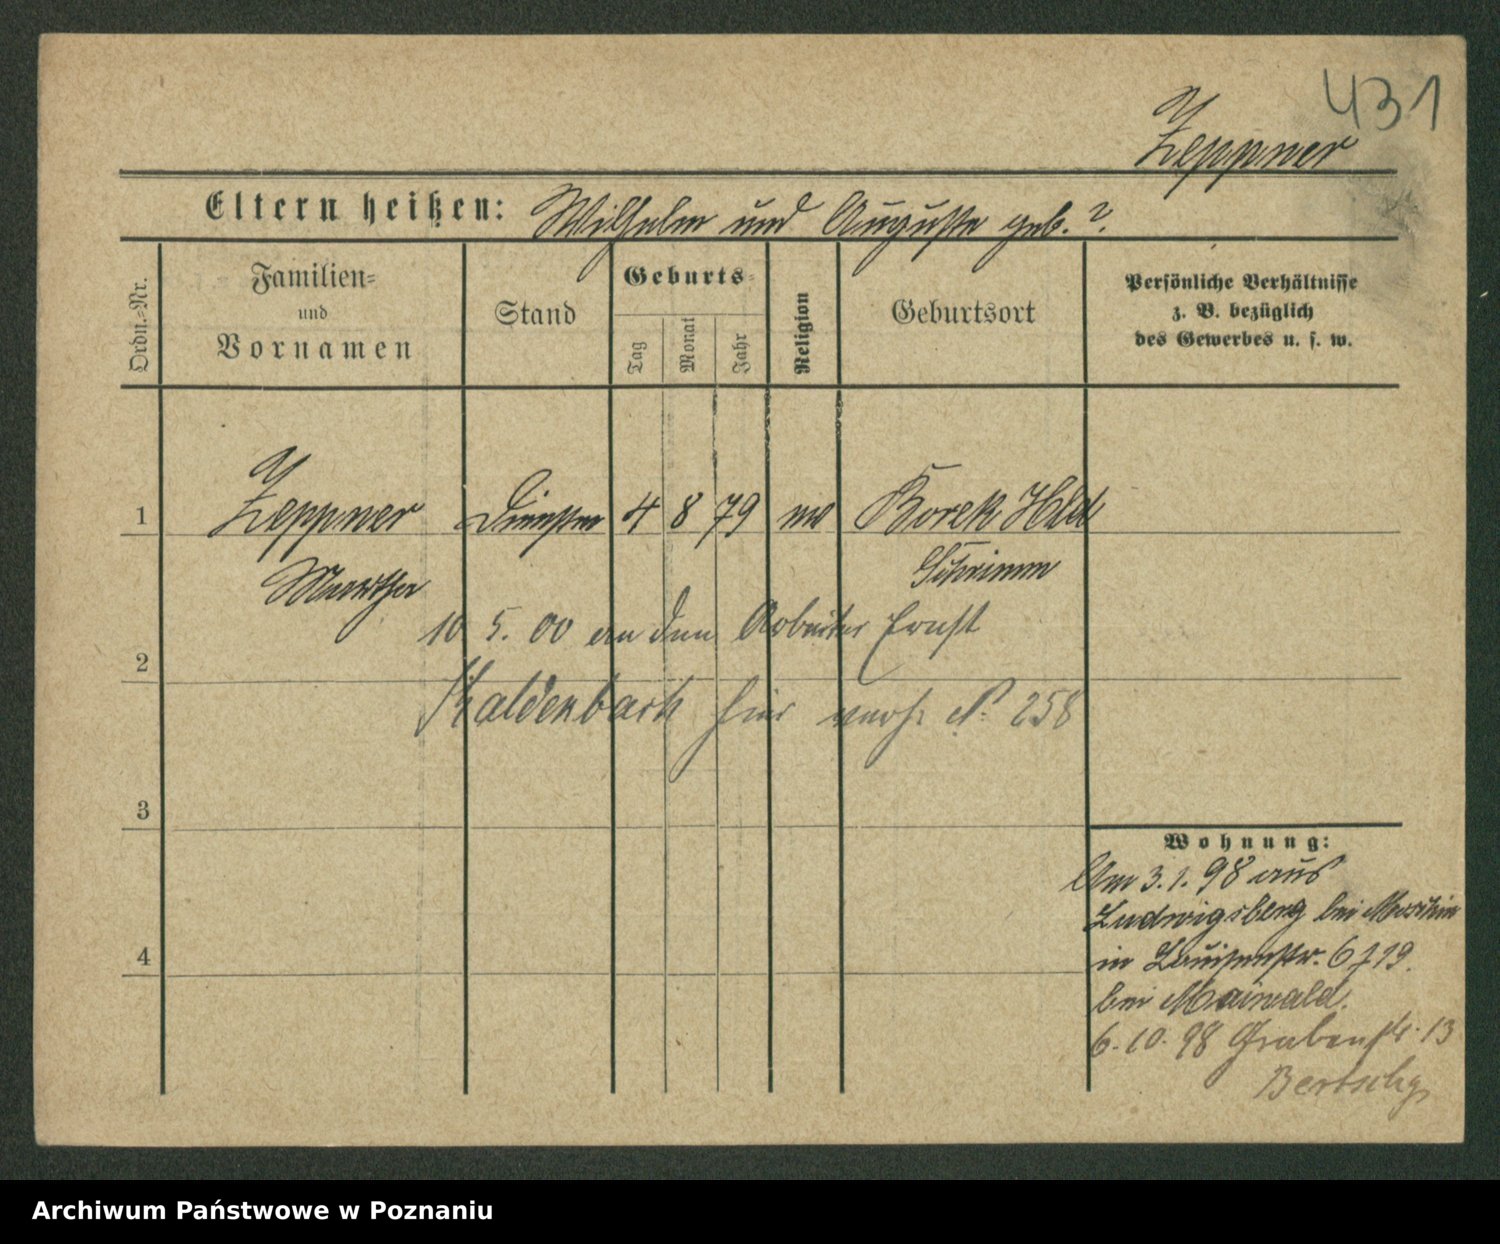 431
Zeppner
Eltern heißen: Wilhelm und Auguste geb. ?.
Ordn.-Nr.
Familien- und Vornamen
Stand
Geburts-
Tag
Monat
Jahr
Religion
Geburtsort
Persönliche Verhältnisse
z. B. bezüglich
des Gewerbes u. s. w.
1 Zeppner 4 8 79 Borek Hld
Martha Schrimm
10 5. 00 an den Arbeiter Ernst
2
Kaldenbach hier verh. No 258
3
4
Wohnung:
Am 3.1.98 aus
Ludwigsberg bei Moschin
in Louisenstr. 6
bei Maiwald.
6.10.98 Grabenstr. 13
Archiwum Państwowe w Poznaniu